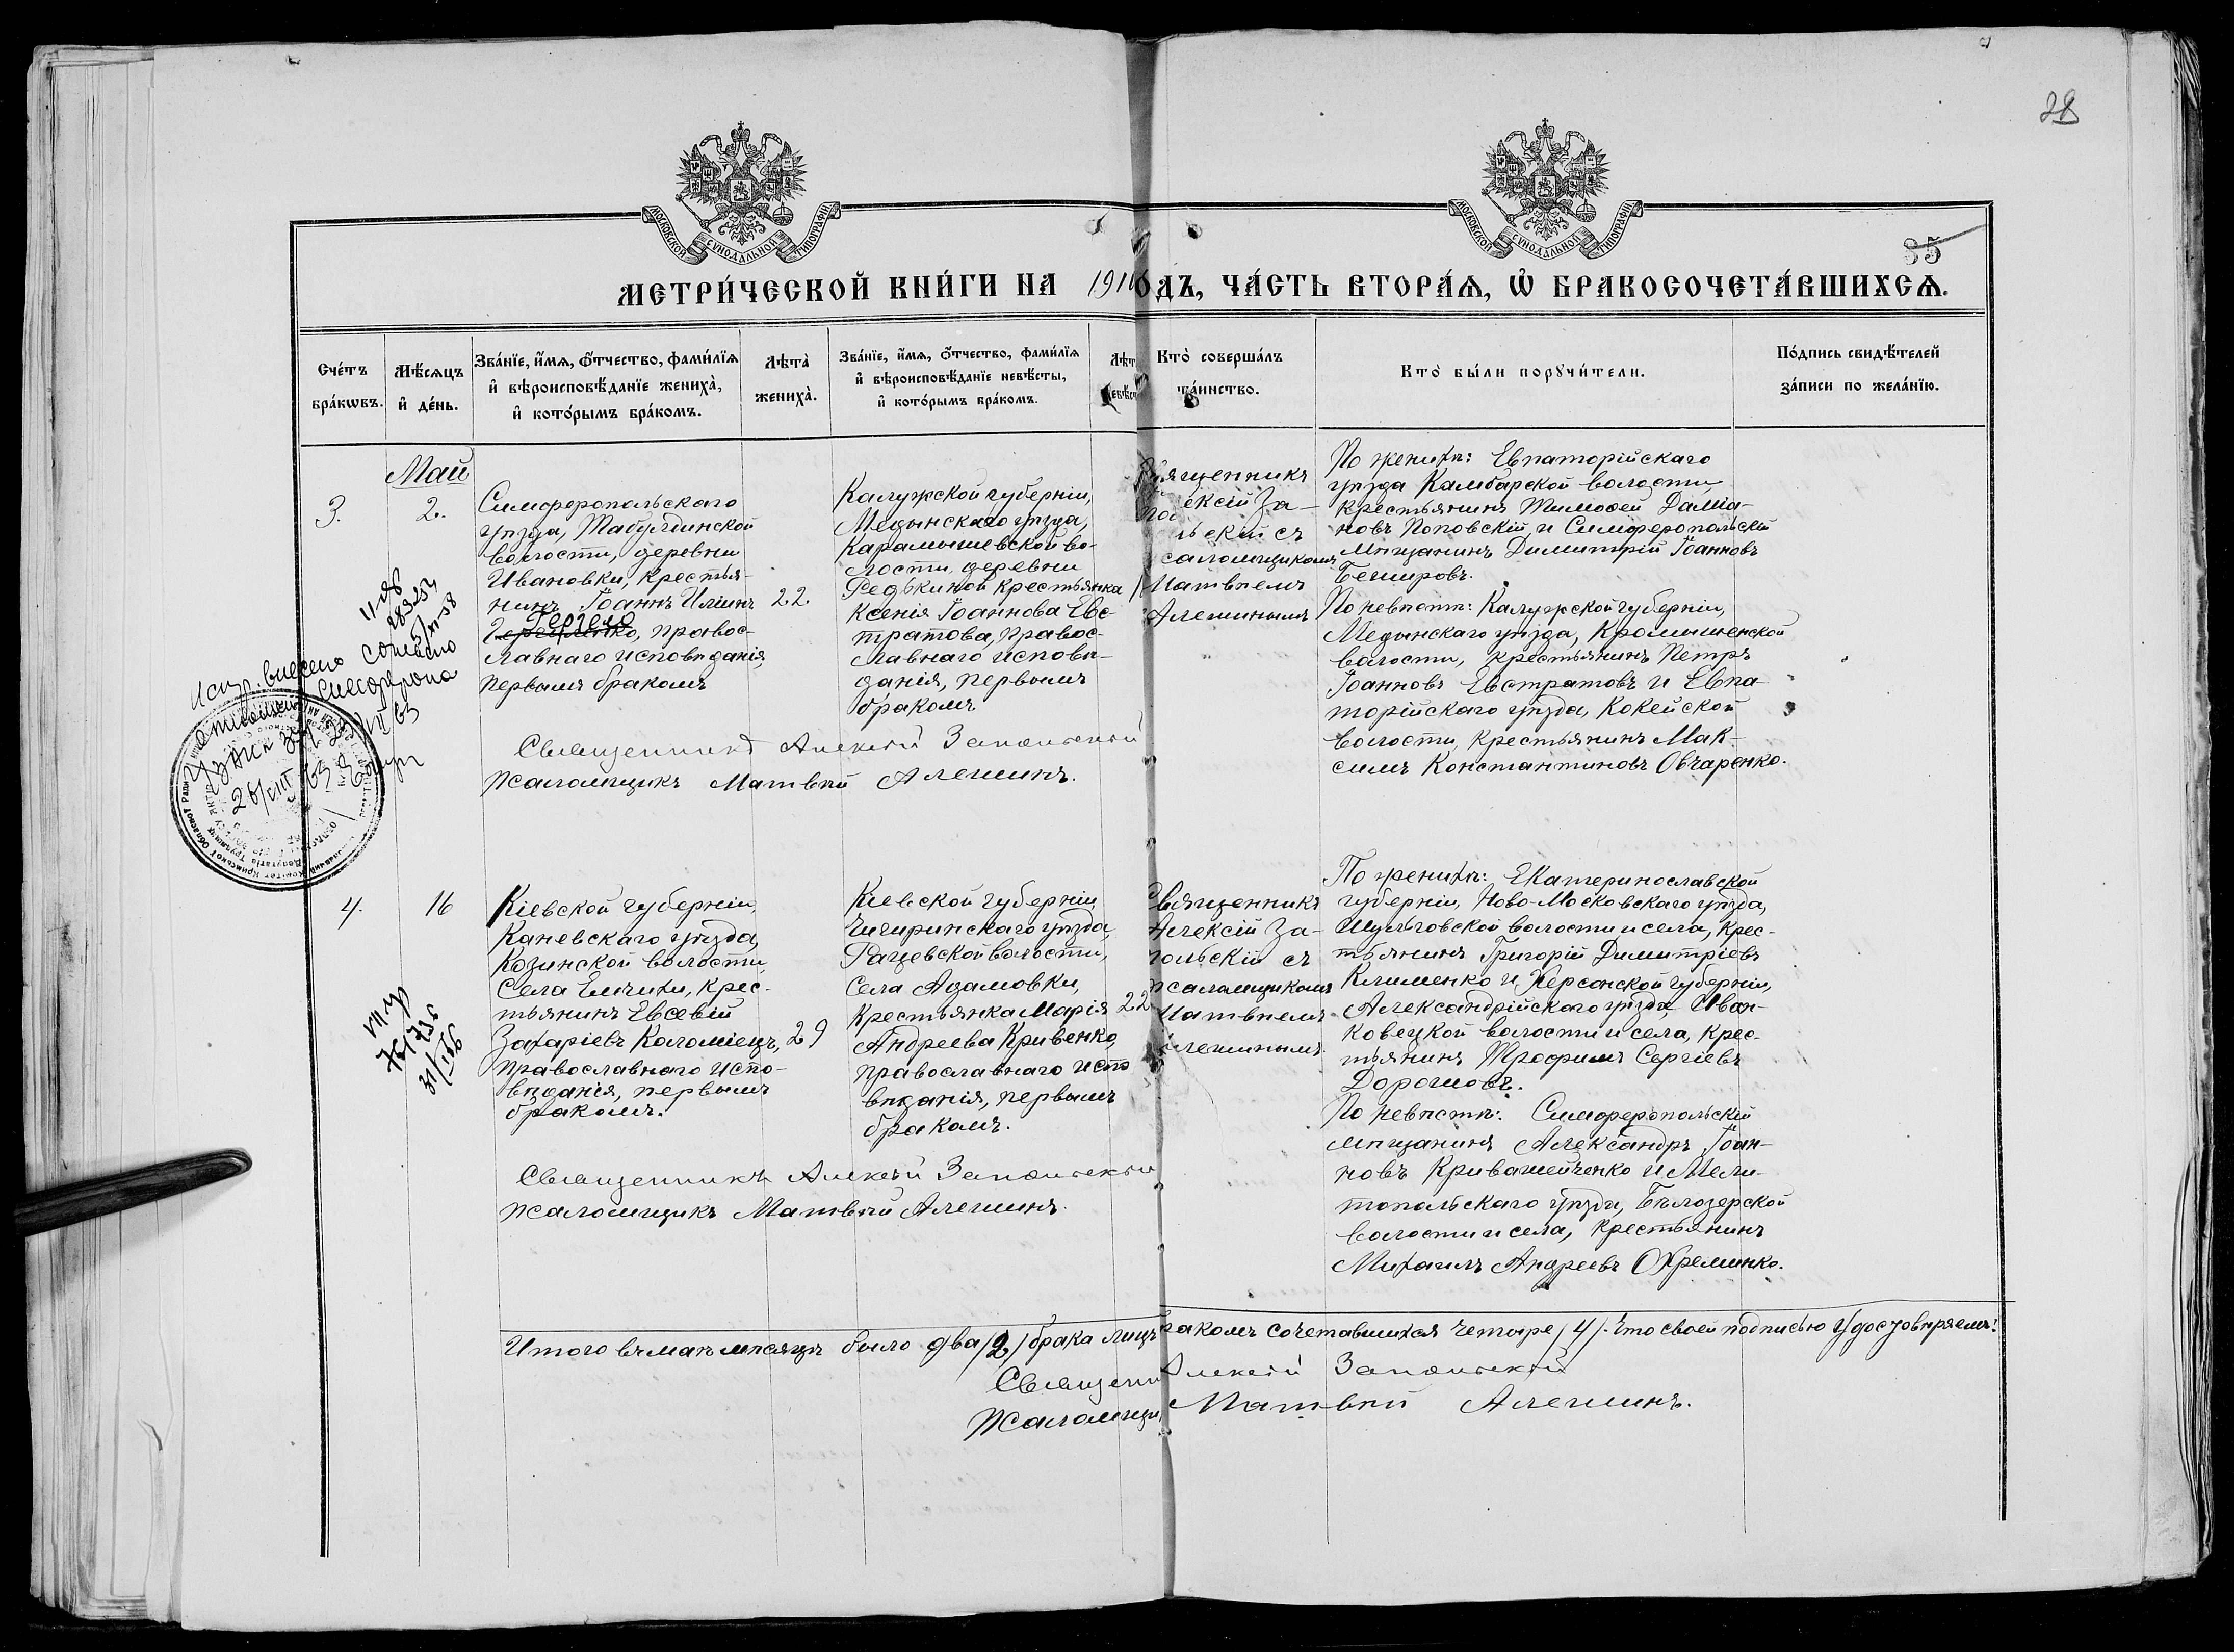 28
35
МОСКОВСКОЙ СѴНОДАЛЬНОЙ ТИПОГРАФІИ
МОСКОВСКОЙ СѴНОДАЛЬНОЙ ТИПОГРАФІИ
МЕТРИ́ЧЕСКОЙ КНИ́ГИ НА 191
ОДЪ, ЧА́СТЬ ВТОРА́Ѧ, Ѽ БРАКОСОЧЕТА́ВШИХСѦ.
Сче́тъ
бра́кѡвъ.
Мѣ́сѧцъ
и҆ де́нь.
Зва́нїе, и҆́мѧ, ѻ҆́тчество, фами́лїѧ
и҆ вѣроисповѣ́данїе жениха̀,
и҆ кото́рымъ бра́комъ.
Лѣта̀
жениха̀.
Зва́нїе, и҆́мѧ, ѻ҆́тчество, фами́лїѧ
и҆ вѣроисповѣ́данїе невѣ́сты,
и҆ кото́рымъ бра́комъ.
Лѣт
евѣ́ст
Кто̀ соверша́лъ
та́инство.
Кто̀ бы́ли порꙋчи́тели.
По́дпись свидѣ́телей
за́писи по жела́нїю.
Май
3.
2.
Симферопольскаго
уѣзда, Табулдинской
волости, деревни
Ивановки, крестья-
нинъ Іоаннъ Иліинъ
Гергело
, правос-
лавнаго исповѣданія,
первымъ бракомъ
22.
Калужской губерніи,
Медынскаго уѣзда,
Карамышевской во-
лости, деревни
Редькиной крестьянка
Ксенія Іоаннова Евс-
тратова, правос-
лавнаго исповѣ-
данія, первымъ
бракомъ
Священникъ
ексій За-
льскій съ
саломщикомъ
Матвѣемъ
Алешинымъ
По женихѣ: Евпаторійскаго
уѣзда Камбарской волости
крестьянинъ Тимофей Даміа-
новъ Поповскій и Симферопольскій
мѣщанинъ Димитрій Іоанновъ
По невѣстѣ: Калужской губерніи,
Медынскаго уѣзда, Кромышенской
волости, крестьянинъ Петръ
Іоанновъ Евстратовъ и Евпа-
торійскаго уѣзда, Кокейской
волости, крестьянинъ Мак-
симъ Константиновъ Овчаренко.
Священникъ Алексій Запольскій
Псаломщикъ Матвѣй Алешинъ.
Испр. внесено согласно
4.
16
Кіевской губерніи,
Каневскаго уѣзда,
Козинской волости,
Села Емчихи, крес-
тьянинъ Евсевій
Захаріевъ Коломіецъ,
православнаго испо-
вѣданія, первымъ
бракомъ.
29
Кіевской губерніи,
Чигиринскаго уѣзда,
Рацевской волости,
Села Адамовки,
крестьянка Марія
Андреева Кривенко,
православнаго испо
вѣданія, первымъ
бракомъ.
22
Священникъ
Алексій За-
польскій съ
псаломщикомъ
Матвѣемъ
Алешинымъ.
По женихѣ: Екатеринославской
губерніи, Ново-Московскаго уѣзда,
Шульговской волости и села, крес-
тьянинъ Григорій Димитріевъ
Клименко и Херсонской губерніи,
Александрійскаго уѣзда Иван-
ковецкой волости и села, крес-
тьянинъ Трофимъ Сергіевъ
Дорошовъ.
По невѣстѣ: Симферопольскій
мѣщанинъ Александръ Іоан-
новъ Кривашейченко и Мели-
топольскаго уѣзда, Бѣлозерской
волости и села, крестьянинъ
Михаилъ Андреевъ Охременко.
Священникъ Алексій Запольскій
Псаломщикъ Матвѣй Алешинъ.
Итого въ маѣ мѣсяцѣ было два /2/ брака лицъ
ракомъ сочетавшихся четыре /4/. Что своей подписью удостовѣряемъ:
Священн Алексій Запольскій
Псаломщи Матвѣй Алешинъ.